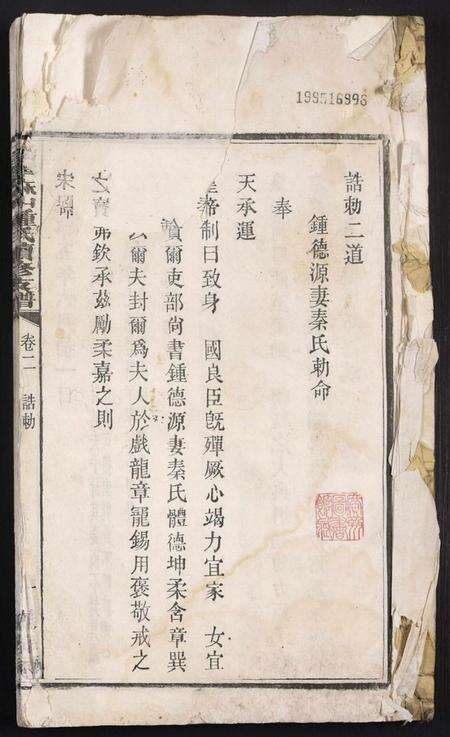 199516996
誥勅二道
鍾德源妻秦氏勅命
奉
天承運
帝制曰致身 國良臣旣殫厥心竭力宜家 女宜
爾吏部尚書鍾德源妻秦氏體德坤柔含章巽
爾夫封爾爲夫人於戲龍章寵錫用褒敬戒之
欽承茲勵柔嘉之則
之寶
鍾氏續修支譜
卷二 誥勅